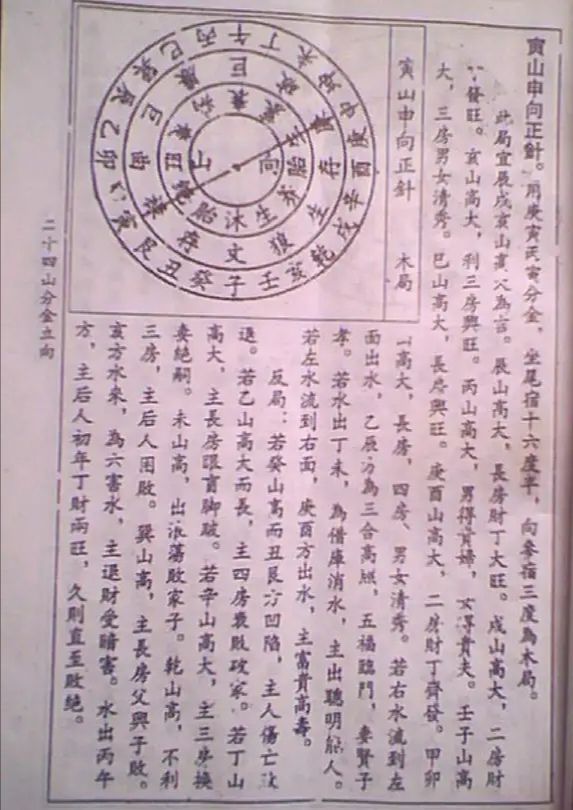 寅山申向正針。用庚寅丙寅分金，坐尾宿十六度半，向參宿三度為木局。
此局宜辰戌亥山高大為吉。辰山高大，長房財丁大旺。戌山高大，二房財
發旺。亥山高大，利三房興旺。丙山高大，男得貴婦，女得貴夫。壬子山高
大，三房男女清秀。巳山高大，長房興旺。庚酉山高大，二房財丁齊發。甲卯
寅山申向正針 木局
山向
旺絕胎沐生養胎
存文狼生存
乙卯寅艮丑癸子壬亥乾戌辛酉庚申坤未丁午丙巳巽辰
高大，長房、四房、男女清秀。若右水流到左
面出水，乙辰方為三合高照，五福臨門，妻賢子
孝。若水出丁未，為借庫消水，主出聰明能人。
若左水流到右面，庚酉方出水，主富貴高壽。
反局：若癸山高而丑艮方凹陷，主人傷亡敗
退。若乙山高大而長，主四房衰敗破家。若丁山
高大，主長房眼盲腳跛。若辛山高大，主三房換
妻絕嗣。未山高，出浪蕩敗家子。乾山高，不利
三房，主后人困敗。巽山高，主長房父興子敗。
亥方水來，為六害水，主退財受暗害。水出丙午
方，主后人初年丁財兩旺，久則直至敗絕。
二十四山分金立向